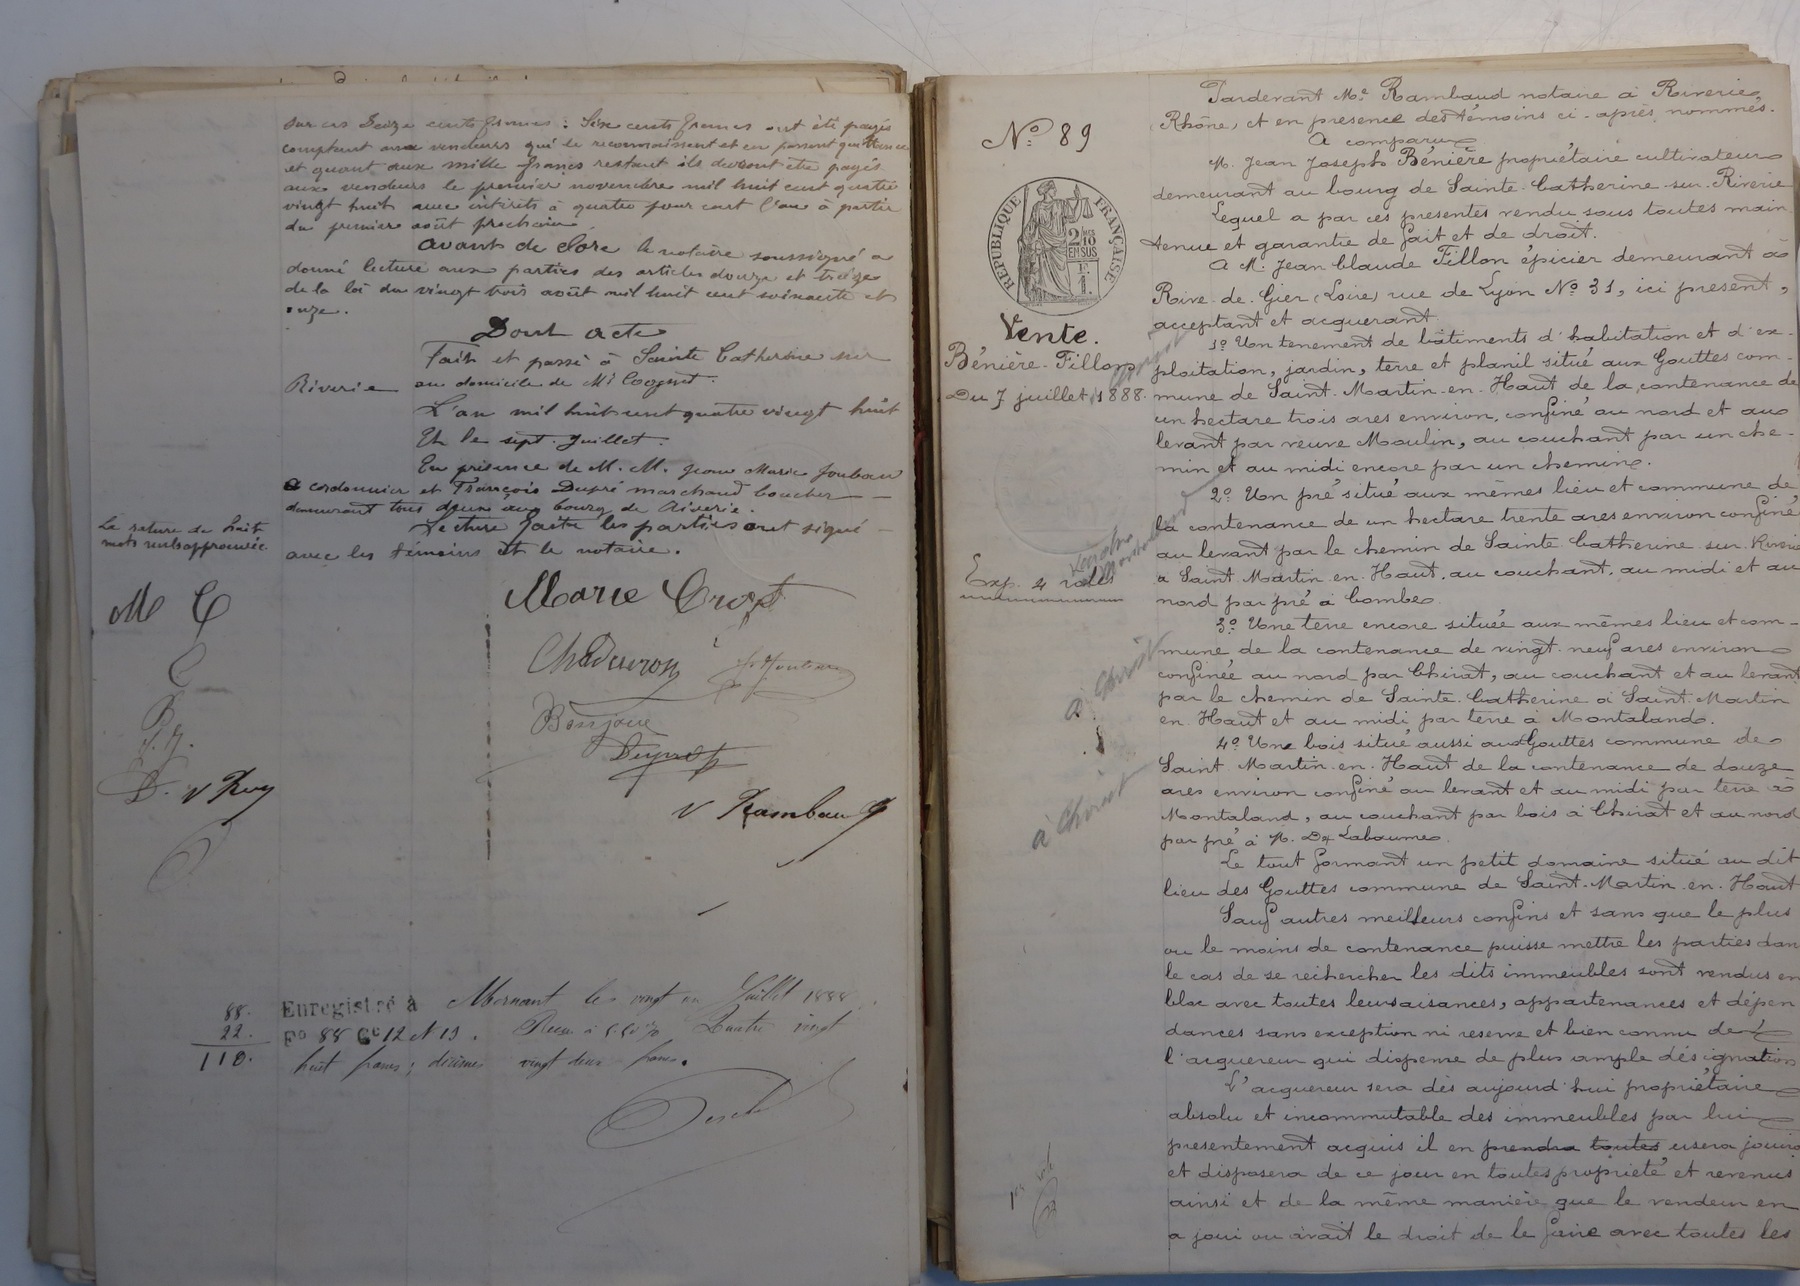 sur ces seize cents francs : Six cents francs ont été payés
comptant aux vendeurs qui le reconnaissent et en passent quittance
et quant aux mille francs restant ils devront être payés
aux vendeurs le premier novembre mil huit cent quatre
vingt huit avec intérêts à quatre pour cent l'an à partir
du premier août prochain.
Avant de clore le notaire soussigné a
donné lecture aux parties des articles douze et treize
de la loi du vingt trois août mil huit cent soixante et
onze.
Dont acte
Fait et passé à Sainte Catherine sur
Riverie au domicile de Mr
L'an mil huit cent quatre vingt huit
Et le sept Juillet.
En présence de M. M. Jean Marie Joubau
cordonnier et François Dupré marchand boucher
demeurant tous deux au bourg de Riverie.
Lecture faite les parties ont signé
avec les témoins et le notaire.
La rature de huit
mots nuls approuvée
M C
Marie Crozet
Dupré
V Rambaud
88.
22.
110.
Enregistré à Mornant le vingt un Juillet 1888.
F° 88 C° 12 et 13. Quatre vingt
huit francs; décimes vingt deux francs.
Pardevant Me Rambaud notaire à Riverie
(Rhône) et en présence des témoins ci-après nommés.
A comparu
M. Jean Joseph Bénière propriétaire cultivateur
demeurant au bourg de Sainte-Catherine-sur-Riverie
Lequel a par ces présentes vendu sous toutes main
tenue et garantie de fait et de droit.
A M. Jean Claude Fillon épicier demeurant à
Rive-de-Gier (Loire) rue de Lyon N° 31, ici présent,
acceptant et acquerant
1° Un tenement de bâtiments d'habitation et d'ex-
ploitation, jardin, terre et planil situé aux Gouttes com-
mune de Saint-Martin-en-Haut de la contenance de
un hectare trois ares environ, confiné au nord et au
levant par veuve Moulin, au couchant par un che-
min et au midi encore par un chemin.
2° Un pré situé aux mêmes lieu et commune de
la contenance de un hectare trente ares environ confiné
au levant par le chemin de Sainte-Catherine-sur-Riverie
à Saint-Martin-en-Haut, au couchant, au midi et au
nord par pré à Combe
3° Une terre encore située aux mêmes lieu et com-
mune de la contenance de vingt-neuf ares environ
confinée au nord par Chirat, au couchant et au levant
par le chemin de Sainte-Catherine à Saint-Martin
en-Haut et au midi par terre à Montaland.
4° Une bois situé aussi aux Gouttes commune de
Saint-Martin-en-Haut de la contenance de douze
ares environ confiné au levant et au midi par terre à
Montaland, au couchant par bois à Chirat et au nord
par pré à M. De Labaume
Le tout formant un petit domaine situé au dit
lieu des Gouttes commune de Saint-Martin-en-Haut
Sauf autres meilleurs confins et sans que le plus
ou le moins de contenance puisse mettre les parties dans
le cas de se rechercher les dits immeubles sont vendus en
bloc avec toutes leurs aisances, appartenances et dépen
dances sans exception ni reserve et bien connu de
l'acquereur qui dispense de plus ample désignation
L'acquereur sera dès aujourd'hui propriétaire
absolu et incommutable des immeubles par lui
presentement acquis il en prendra toutes usera jouira
et disposera de ce jour en toutes propriété et revenus
ainsi et de la même manière que le vendeur en
a joui ou avait le droit de le faire avec toutes les
N° 89
RÉPUBLIQUE FRANÇAISE
2/10 MES
EN SUS
F.
1.
Vente.
Bénière-Fillon
Du 7 juillet 1888.
Exp. 4 roles
à Chirat
à Chirat